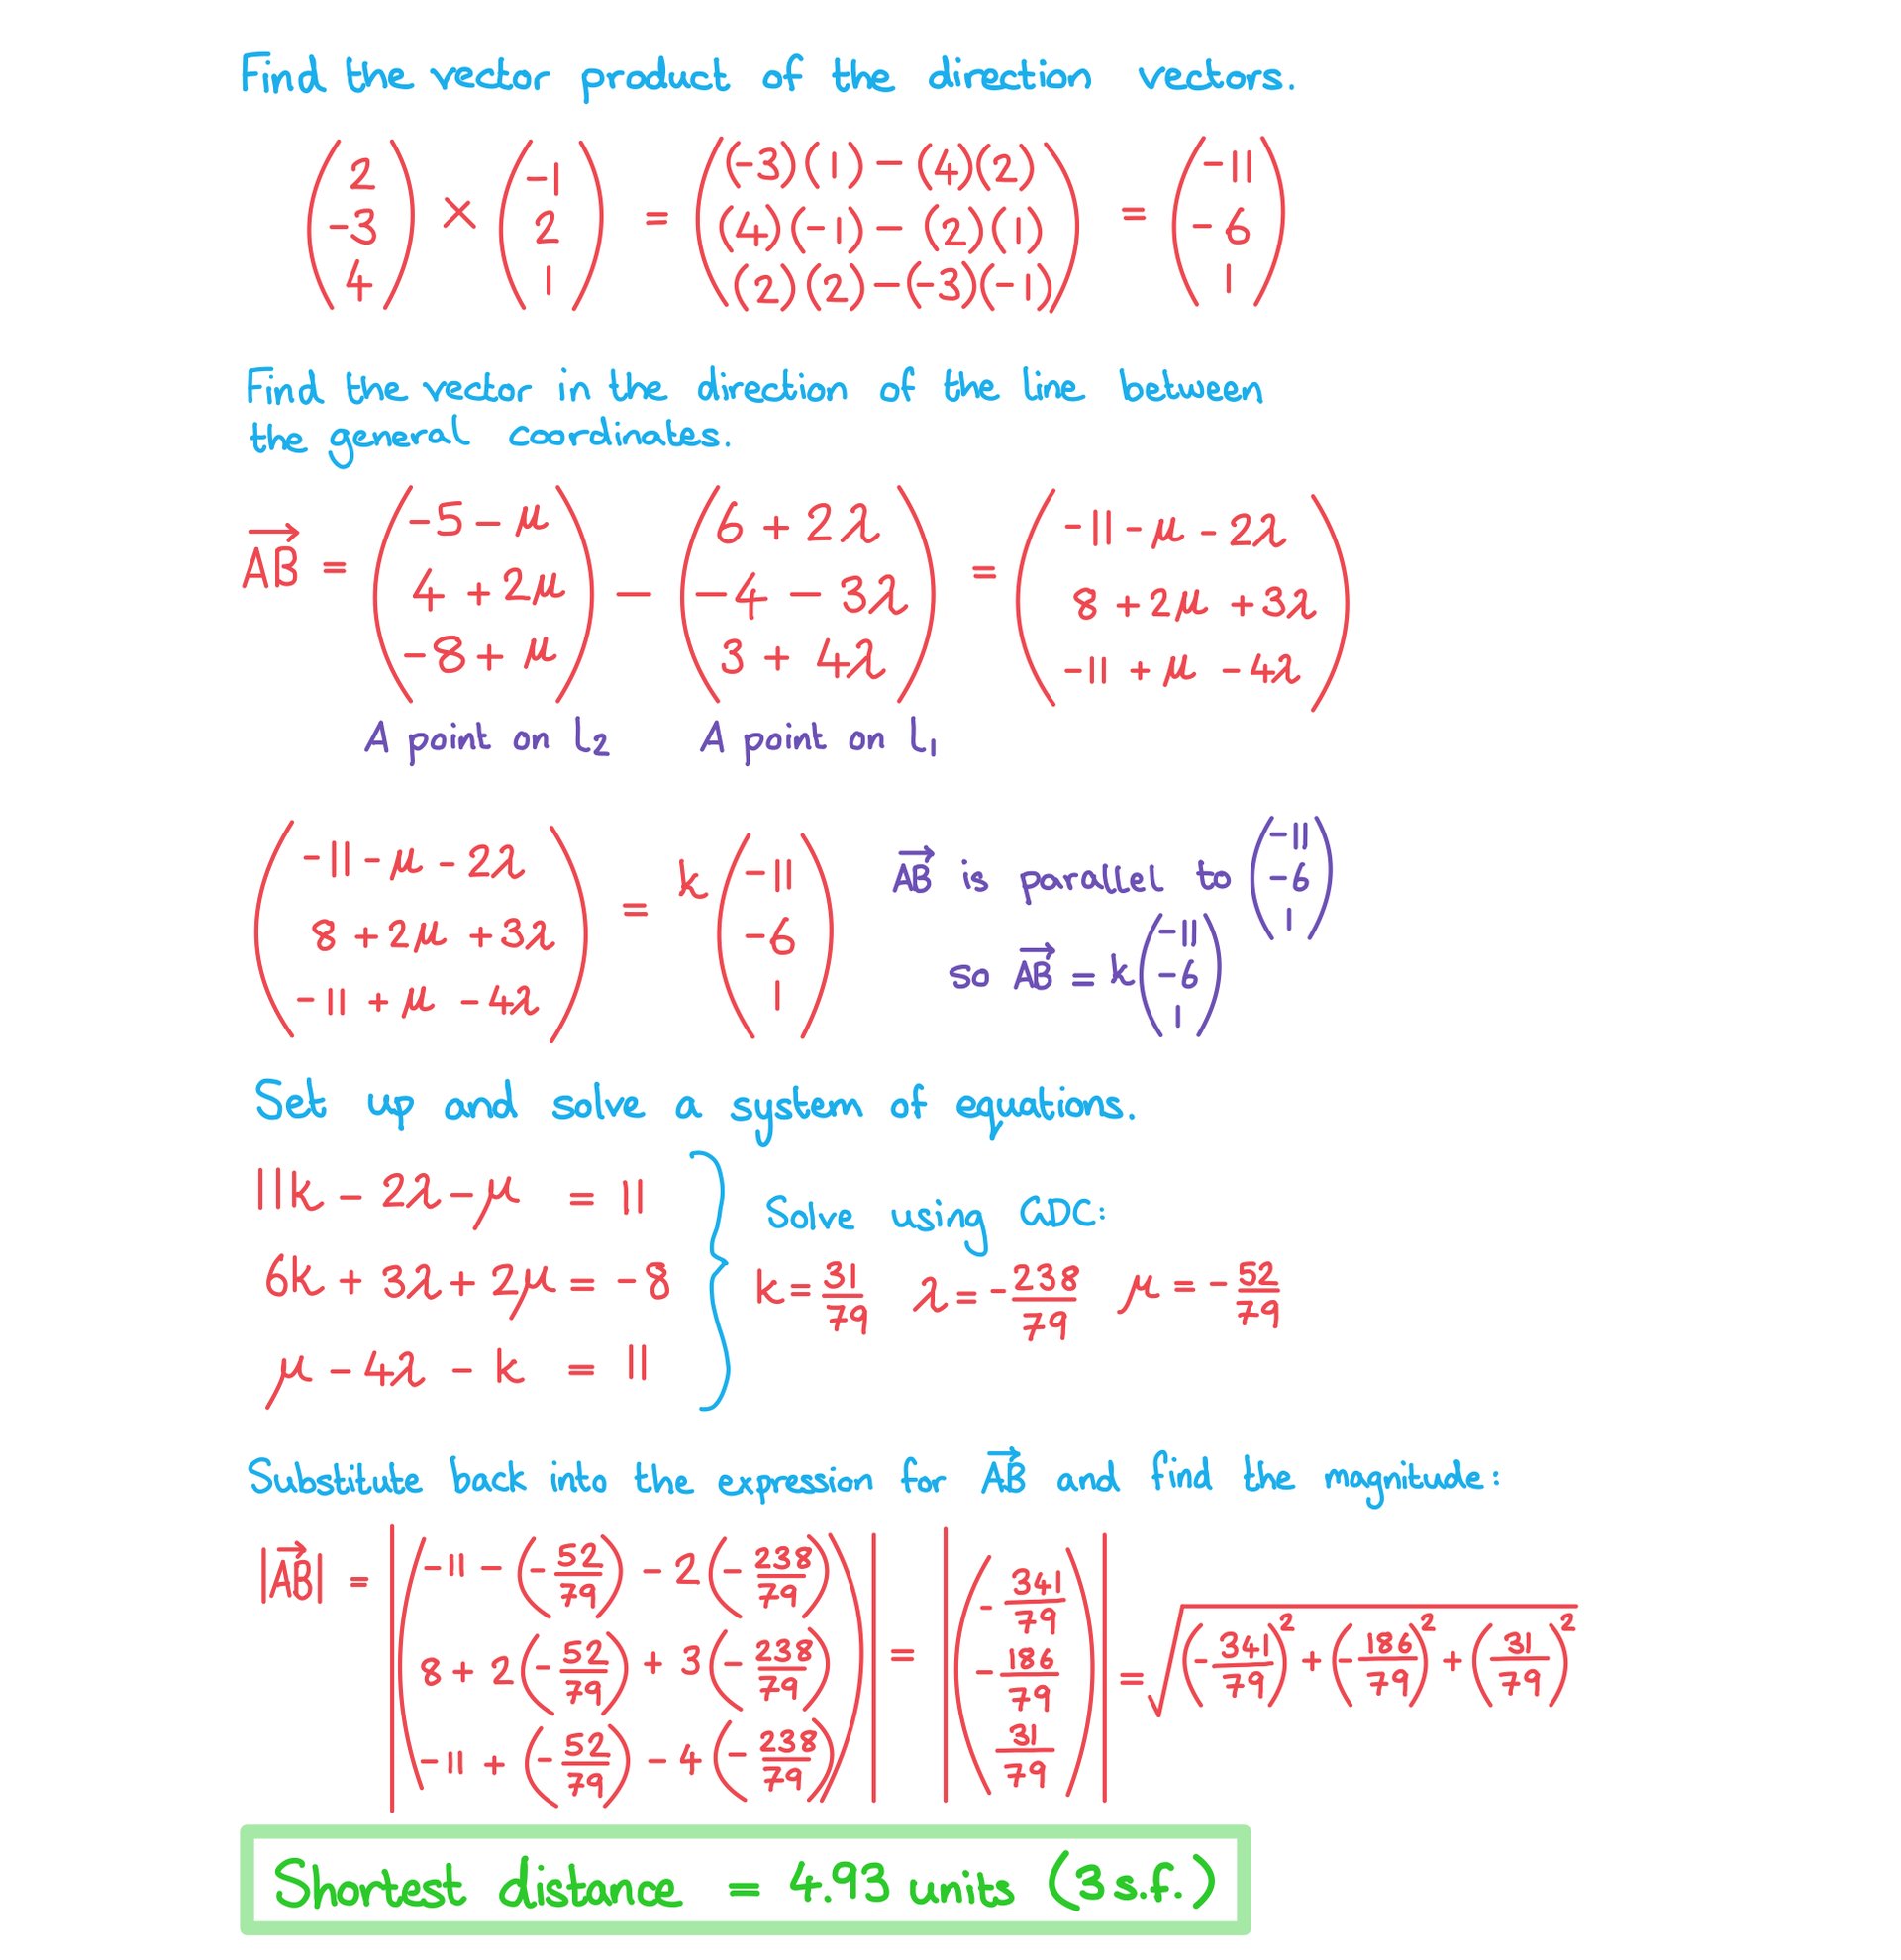 Find the vector product of the direction vectors.
(2, -3, 4) × (-1, 2, 1) = ((-3)(1) - (4)(2), (4)(-1) - (2)(1), (2)(2) - (-3)(-1)) = (-11, -6, 1)
Find the vector in the direction of the line between
the general coordinates.
AB→ = (-5 - μ, 4 + 2μ, -8 + μ) - (6 + 2λ, -4 - 3λ, 3 + 4λ) = (-11 - μ - 2λ, 8 + 2μ + 3λ, -11 + μ - 4λ)
A point on l₂ A point on l₁
(-11 - μ - 2λ, 8 + 2μ + 3λ, -11 + μ - 4λ) = k(-11, -6, 1)
AB→ is parallel to (-11, -6, 1)
so AB→ = k(-11, -6, 1)
Set up and solve a system of equations.
11k - 2λ - μ = 11
6k + 3λ + 2μ = -8
μ - 4λ - k = 11
Solve using GDC:
k = 31/79 λ = -238/79 μ = -52/79
Substitute back into the expression for AB→ and find the magnitude:
|AB→| = |(-11 - (-52/79) - 2(-238/79), 8 + 2(-52/79) + 3(-238/79), -11 + (-52/79) - 4(-238/79))| = |(-341/79, -186/79, 31/79)| = √((-341/79)² + (-186/79)² + (31/79)²)
Shortest distance = 4.93 units (3 s.f.)